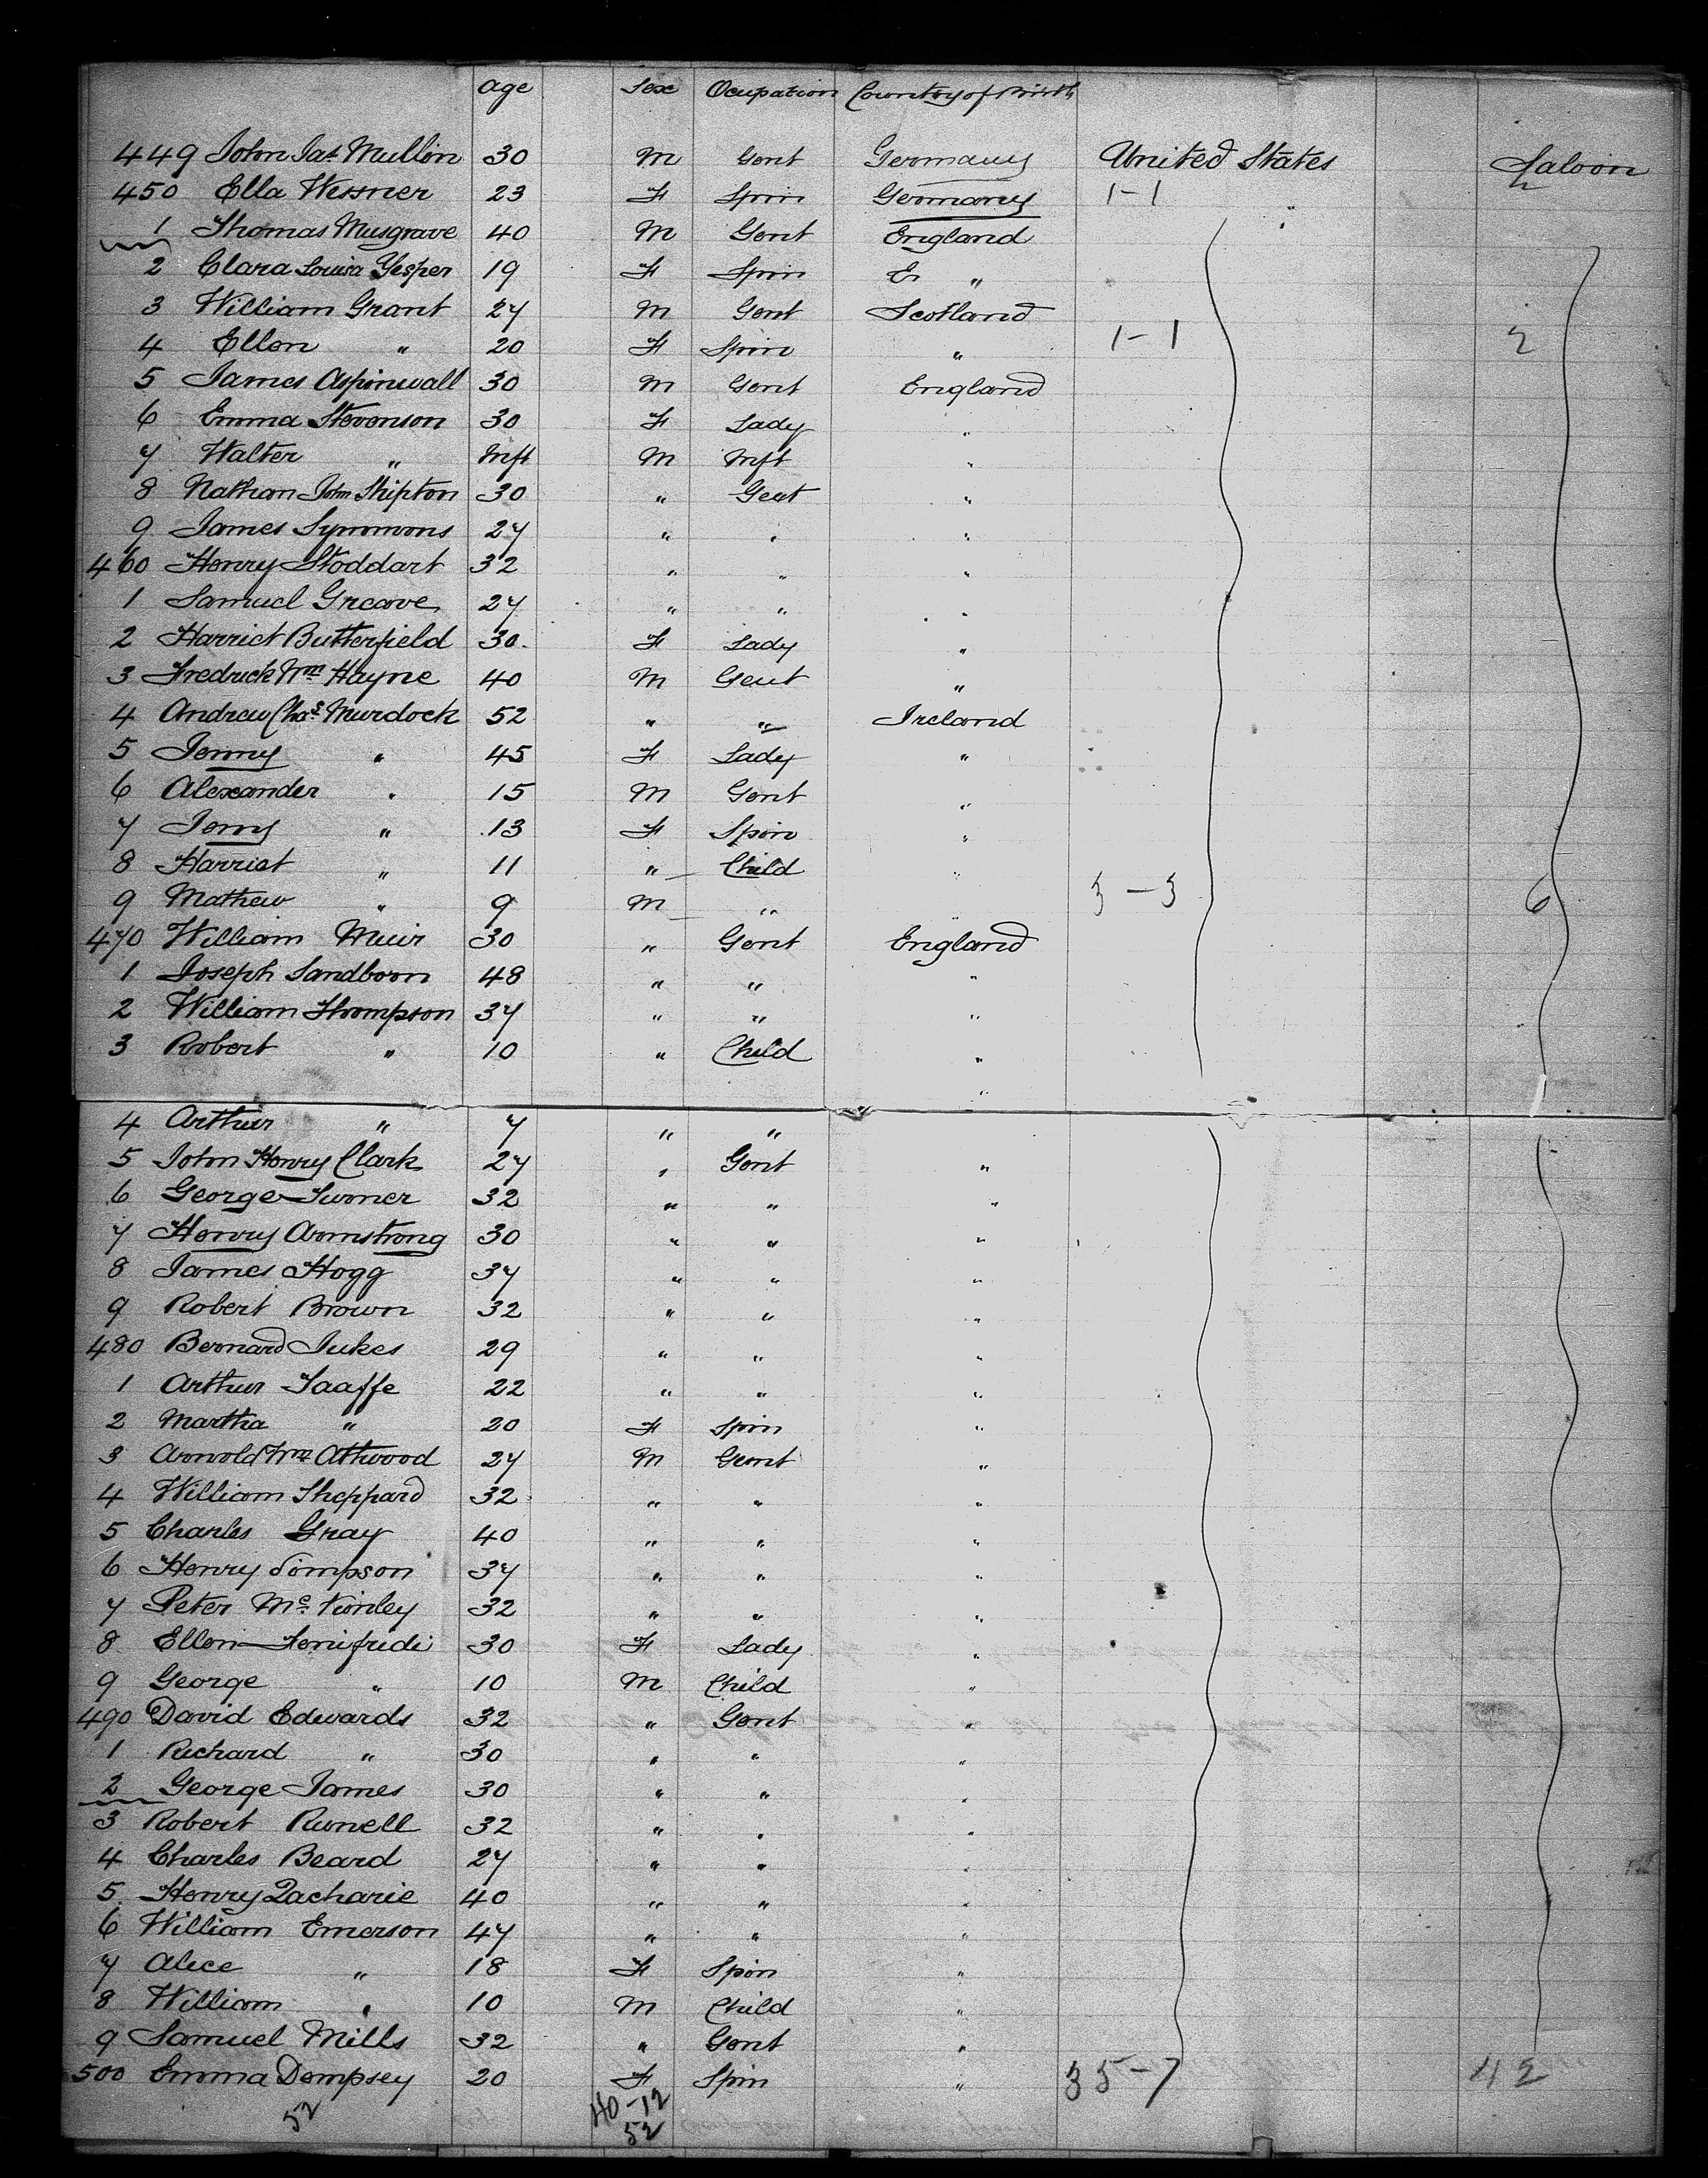 age Sex Ocupation Country of Birth
449 John Jas. Mullin 30 M Gent Germany United States Saloon
450 Ella Wessner 23 F Spin Germany 1-1 2
1 Thomas Musgrave 40 M Gent England
2 Clara Louisa Yesper 19 F Spin E "
3 William Grant 27 M Gent Scotland
4 Ellen " 20 F Spin " 1-1 2
5 James Aspinwall 30 M Gent England
6 Emma Stevenson 30 F Lady "
7 Walter " Inft M Inft "
8 Nathan John Shipton 30 " Gent "
9 James Symmons 27 " " "
460 Henry Stoddart 32 " " "
1 Samuel Greave 27 " " "
2 Harriet Butterfield 30 F Lady "
3 Fredrick Wm Hayne 40 M Gent "
4 Andrew Chas. Murdock 52 " " Ireland
5 Jenny " 45 F Lady "
6 Alexander " 15 M Gent "
7 Jeny " 13 F Spin "
8 Harriet " 11 " Child "
9 Mathew " 9 M " " 3-3 6
470 William Muir 30 " Gent England
1 Joseph Sandborn 48 " " "
2 William Thompson 37 " " "
3 Robert " 10 " Child "
4 Arthur " 7 " " "
5 John Henry Clark 27 " Gent "
6 George Turner 32 " " "
7 Henry Armstrong 30 " " "
8 James Hogg 37 " " "
9 Robert Brown 32 " " "
480 Bernard Jukes 29 " " "
1 Arthur Taaffe 22 " " "
2 Martha " 20 F Spin "
3 Arnold Wm Attwood 27 M Gent "
4 William Sheppard 32 " " "
5 Charles Gray 40 " " "
6 Henry Simpson 37 " " "
7 Peter Mc Kinley 32 " " "
8 Ellen 30 F Lady "
9 George " 10 M Child "
490 David Edwards 32 " Gent "
1 Richard " 30 " " "
2 George James 30 " " "
3 Robert Runell 32 " " "
4 Charles Beard 27 " " "
5 Henry Zacharie 40 " " "
6 William Emerson 47 " " "
7 Alice " 18 F Spin "
8 William " 10 M Child "
9 Samuel Mills 32 " Gent "
500 Emma Dempsey 20 F Spin " 35-7 42
52 40-12
52